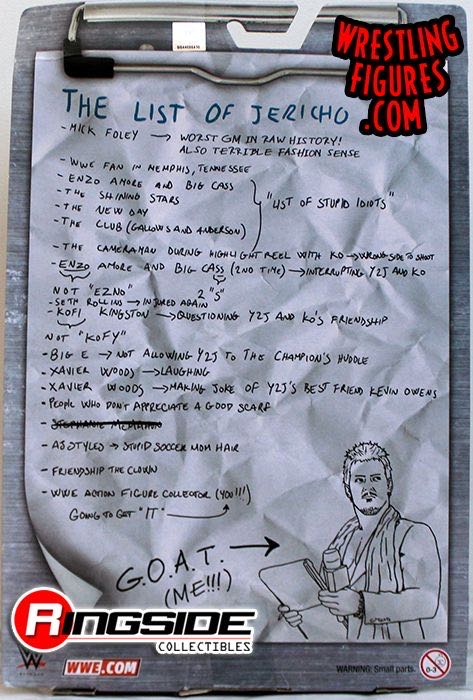 WRESTLING
FIGURES
.COM
THE LIST OF JERICHO
-MICK FOLEY → WORST GM IN RAW HISTORY!
ALSO TERRIBLE FASHION SENSE
- WWE FAN IN MEMPHIS, TENNESSEE
- ENZO AMORE AND BIG CASS
- THE SHINING STARS
- THE NEW DAY
- THE CLUB (GALLOWS AND ANDERSON)
"LIST OF STUPID IDIOTS"
- THE CAMERAMAN DURING HIGHLIGHT REEL WITH KO → WRONG SIDE TO SHOOT
- ENZO AMORE AND BIG CASS (2ND TIME) → INTERRUPTING Y2J AND KO
NOT "EZNO" 2 "S"
- SETH ROLLINS → INJURED AGAIN
- KOFI KINGSTON → QUESTIONING Y2J AND KO'S FRIENDSHIP
NOT "KOFY"
- BIG E → NOT ALLOWING Y2J TO THE CHAMPION'S HUDDLE
- XAVIER WOODS → LAUGHING
- XAVIER WOODS → MAKING JOKE OF Y2J'S BEST FRIEND KEVIN OWENS
- PEOPLE WHO DON'T APPRECIATE A GOOD SCARF
- STEPHANIE MCMAHON
- AJ STYLES → STUPID SOCCER MOM HAIR
- FRIENDSHIP THE CLOWN
- WWE ACTION FIGURE COLLECTOR (YOU!!!)
GOING TO GET "IT"
G.O.A.T. →
(ME!!!)
RINGSIDE
COLLECTIBLES
W
WWE.COM
WARNING: Small parts.
0-3